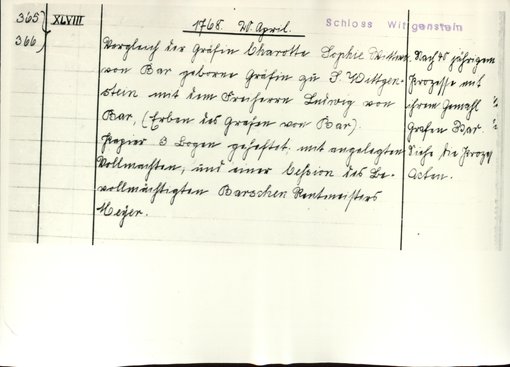 365)
366)
XLVIII
1768. 20. April.
Schloss Wittgenstein
Vergleich der Gräfin Charotte Sophie Wittwe
von Bar geborne Gräfin zu S. Wittgen-
stein mit dem Freiherrn Ludwig von
Bar, (Erben des Grafen von Bar).
Papier 3 Bogen geheftet, mit angelegten
Vollmachten, und einer Cession des Be-
vollmächtigten Barschen Rentmeisters
Meyer.
Nach 45 jährigem
Prozesse mit
ihrem Gemahl
Grafen Bar.
Siehe die Prozeß
Acten.